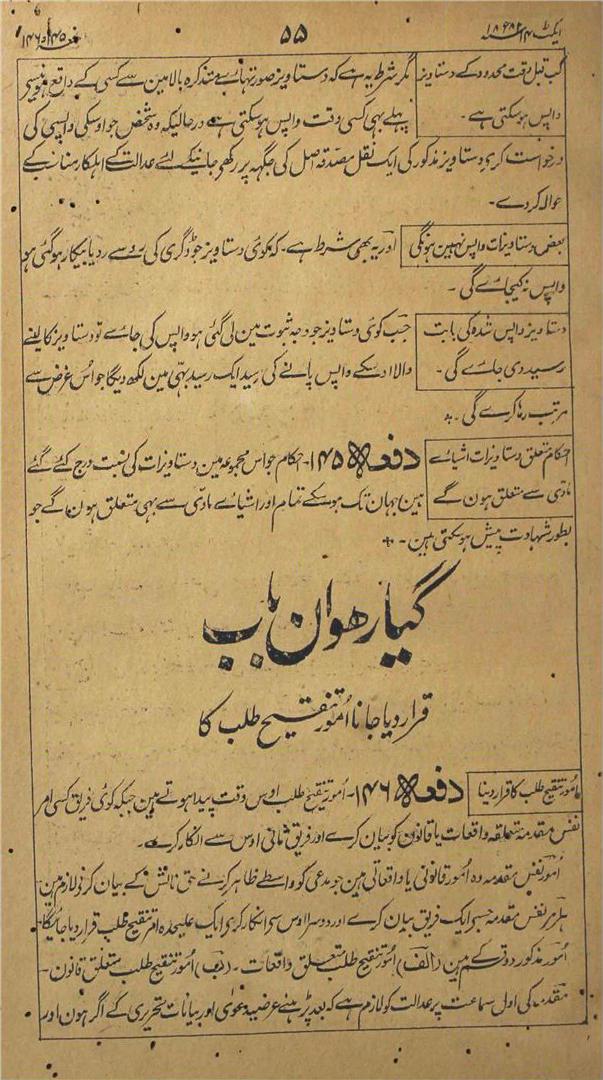 ایکٹ ۱۴ ۱۸۸۲ ۵۵ دفعہ ۱۴۵ و ۱۴۶
کب قبل وقت محدود کے دستاویز مگر شرط یہ ہے کہ دستاویز صورتہائے متذکرہ بالا مین سے کسی کے واقع ہونیسے
واپس ہوسکتی ہے۔ پہلے بھی کسی وقت واپس ہوسکتی ہے درحالیکہ وہ شخص جو اوسکی واپسی کی
درخواست کرے دستاویز مذکور کی ایک نقل مصدقہ اصل کی جگہہ پر رکھی جانیکے لئے عدالت کے اہلکار مناسب کے
حوالہ کردے۔
بعض دستاویزات واپس نہین ہونگی اور یہ بھی شرط ہے۔ کہ کوئی دستاویز جو ڈگری کی رو سے رد یا بیکار ہوگئی ہو
واپس نہ کیجائے گی۔
دستاویز واپس شدہ کی بابت جب کوئی دستاویز جو وجہ ثبوت مین لی گئی ہو واپس کی جائے تو دستاویز کا لینے
رسید دی جائے گی۔ والا اوسکے واپس پانے کی رسید ایک رسید بہی مین لکھ دیگا جو اس غرض سے
مرتب رہا کرے گی۔
احکام متعلق دستاویزات اشیائے دفعہ ۱۴۵۔ احکام جو اس مجموعہ مین دستاویزات کی نسبت درج کئے گئے
مادی سے متعلق ہون گے ہین جہان تک ہوسکے تمام اور اشیائے مادی سے بھی متعلق ہون گے جو
بطور شہادت پیش ہوسکتی ہین۔
گیارھوان باب
قرار دیا جانا امور تنقیح طلب کا
امور تنقیح طلب کا قرار دینا دفعہ ۱۴۶۔ امور تنقیح طلب اوس وقت پیدا ہوتے ہین جبکہ کوئی فریق کسی امر
نفس مقدمہ متعلقہ واقعات یا قانون کو بیان کرے اور فریق ثانی اوس سے انکار کرے۔
امور نفس مقدمہ وہ امور قانونی یا واقعاتی ہین جو مدعی کو واسطے ظاہر کرنے حق نالش کے بیان کرنی لازم ہین
ہر امر نفس مقدمہ جسے ایک فریق بیان کرے اور دوسرا اوس سے انکار کرے ایک علیحدہ امر تنقیح طلب قرار دیا جائیگا
امور مذکور دو قسم کے ہین (الف) امور تنقیح طلب متعلق واقعات۔ (ب) امور تنقیح طلب متعلق قانون۔
مقدمہ کی اول سماعت پر عدالت کو لازم ہے کہ بعد پڑہنے عرضی دعوی اور بیانات تحریری کے اگر ہون اور